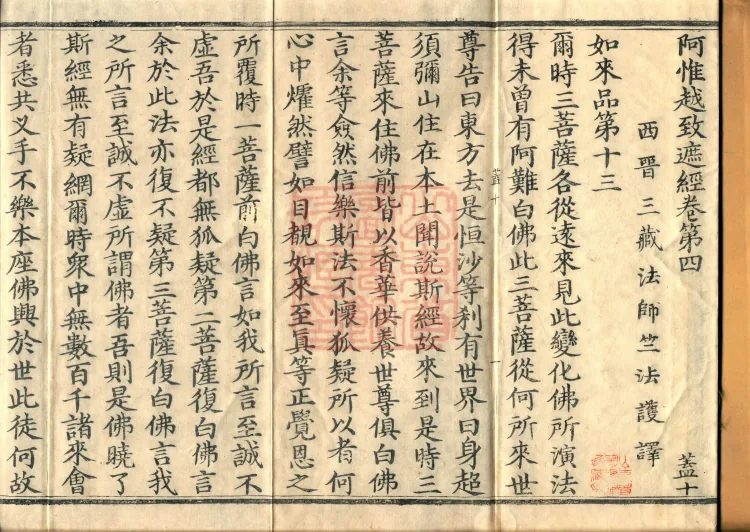 阿惟越致遮經卷第四　蓋十
西晉三藏法師竺法護譯
如來品第十三
爾時三菩薩各從遠來見此變化佛所演法
得未曾有阿難白佛此三菩薩從何所來世
蓋十　一
尊告曰東方去是恒沙等刹有世界曰身超
須彌山住在本土聞說斯經故來到是時三
菩薩來住佛前皆以香華供養世尊俱白佛
言余等僉然信樂斯法不懷狐疑所以者何
心中燿然譬如目覩如來至真等正覺恩之
所覆時一菩薩前白佛言如我所言至誠不
虛吾於是經都無狐疑第二菩薩復白佛言
余於此法亦復不疑第三菩薩復白佛言我
之所言至誠不虛所謂佛者吾則是佛曉了
斯經無有疑網爾時衆中無數百千諸來會
者悉共叉手不樂本座佛興於世此徒何故